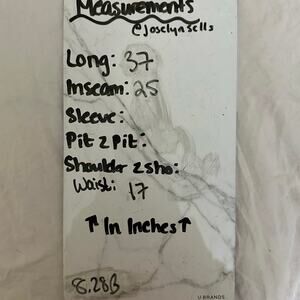 Measurements
@joselynsells
Long: 37
Inseam: 25
Sleeve:
Pit 2 Pit:
Shoulder 2 Sho:
Waist: 17
↑ In Inches ↑
U BRANDS